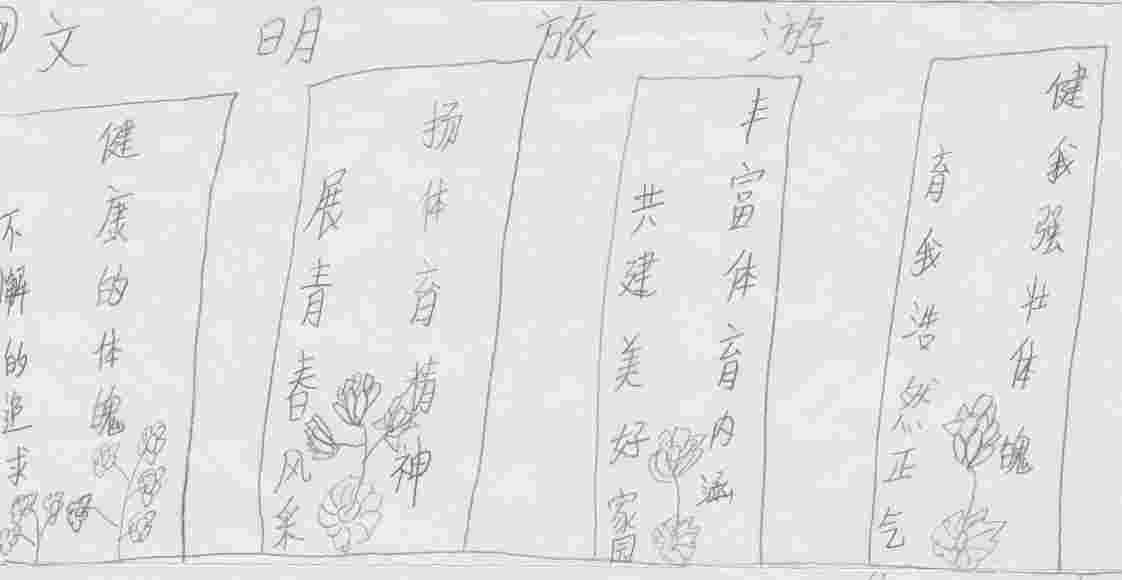 文明旅游
健康的体魄
不解的追求
扬体育精神
展青春风采
丰富体育内涵
共建美好家园
健我强壮体魄
育我浩然正气